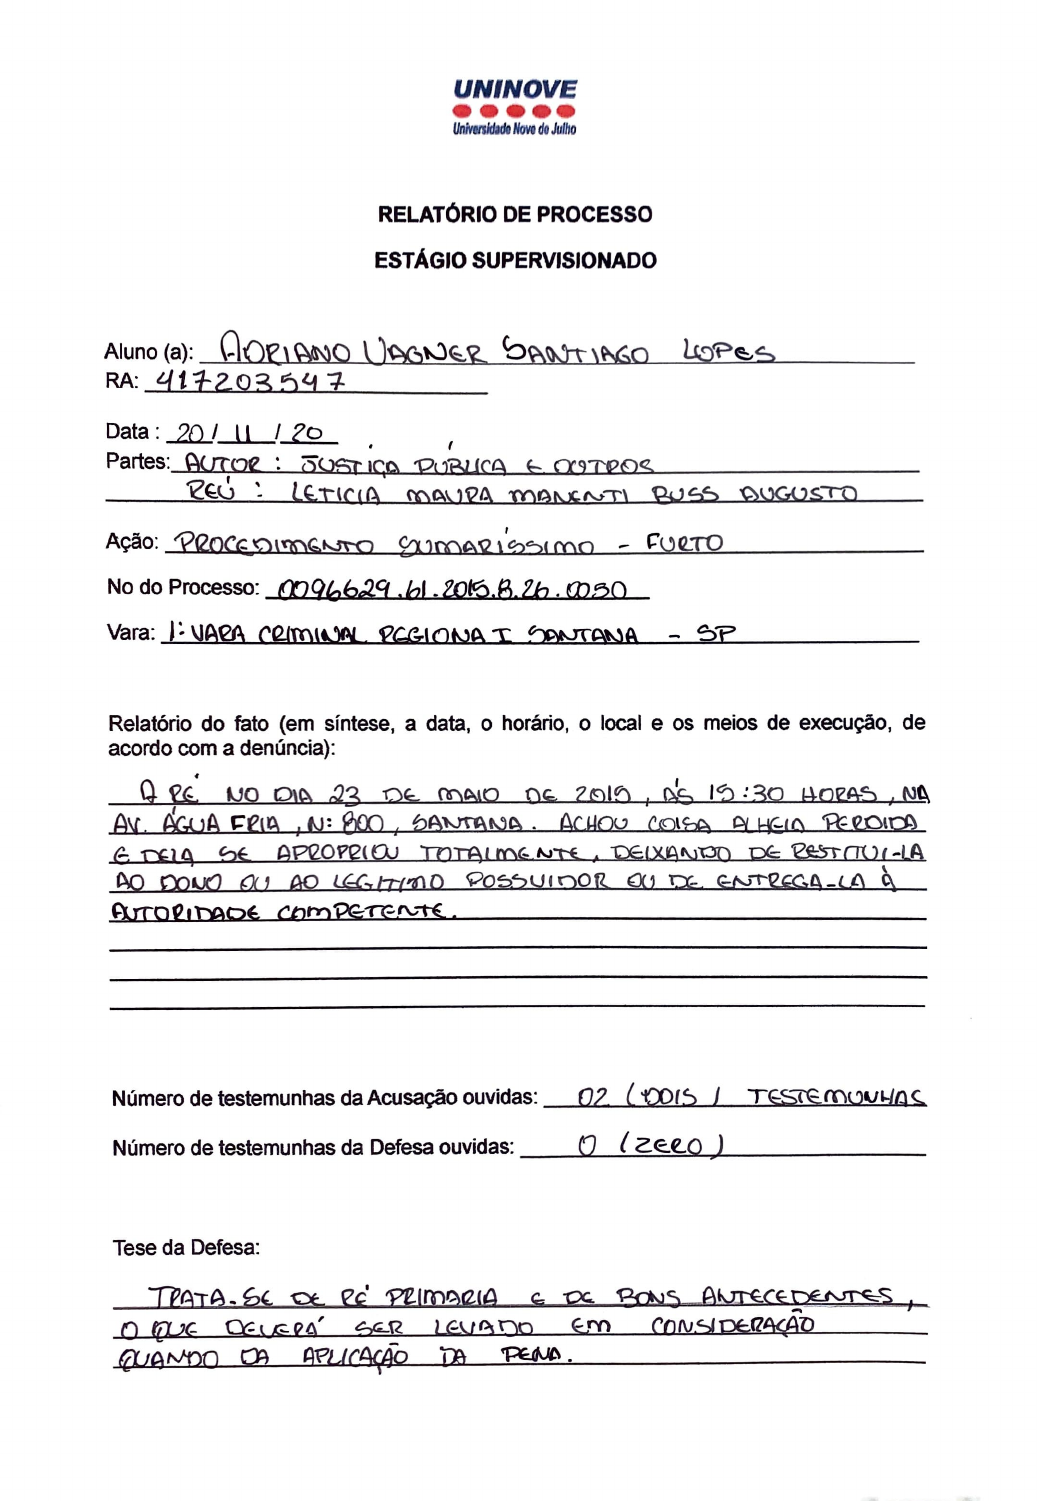 UNINOVE
Universidade Nove de Julho
RELATÓRIO DE PROCESSO
ESTÁGIO SUPERVISIONADO
Aluno (a): ADRIANO VAGNER SANTIAGO LOPES
RA: 417203547
Data : 20 / 11 / 20
Partes: AUTOR : JUSTIÇA PÚBLICA E OUTROS
REÚ : LETICIA MAURA MANENTI BUSS AUGUSTO
Ação: PROCEDIMENTO SUMARÍSSIMO - FURTO
No do Processo: 0096629.61.2015.8.26.0050
Vara: 1ª VARA CRIMINAL REGIONAL I SANTANA - SP
Relatório do fato (em síntese, a data, o horário, o local e os meios de execução, de
acordo com a denúncia):
A RÉ NO DIA 23 DE MAIO DE 2015, ÁS 15:30 HORAS, NA
AV. ÁGUA FRIA, Nº 800, SANTANA. ACHOU COISA ALHEIA PERDIDA
E DELA SE APROPRIOU TOTALMENTE, DEIXANDO DE RESTITUI-LA
AO DONO OU AO LEGITIMO POSSUIDOR OU DE ENTREGA-LA À
AUTORIDADE COMPETENTE.
Número de testemunhas da Acusação ouvidas: 02 (DOIS) TESTEMUNHAS
Número de testemunhas da Defesa ouvidas: 0 (ZERO)
Tese da Defesa:
TRATA-SE DE RÉ PRIMARIA E DE BONS ANTECEDENTES,
O QUE DEVERÁ SER LEVADO EM CONSIDERAÇÃO
QUANDO DA APLICAÇÃO DA PENA.